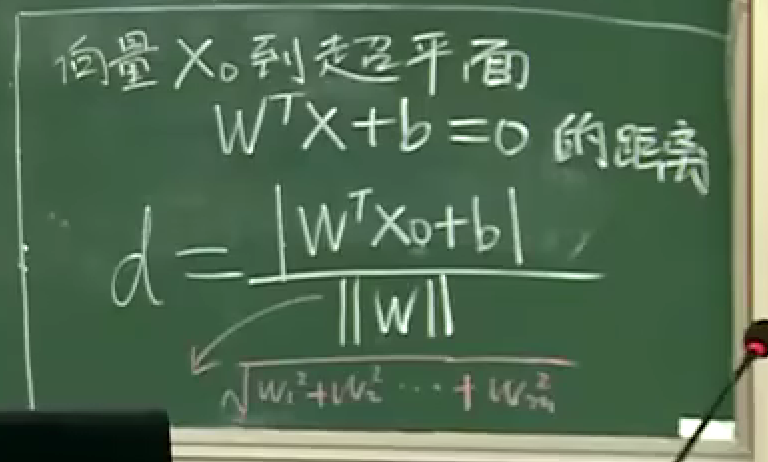 向量 X₀ 到超平面
WᵀX+b=0 的距离
d = |WᵀX₀+b| / ||W||
√(W₁²+W₂² ⋯ + Wₘ²)